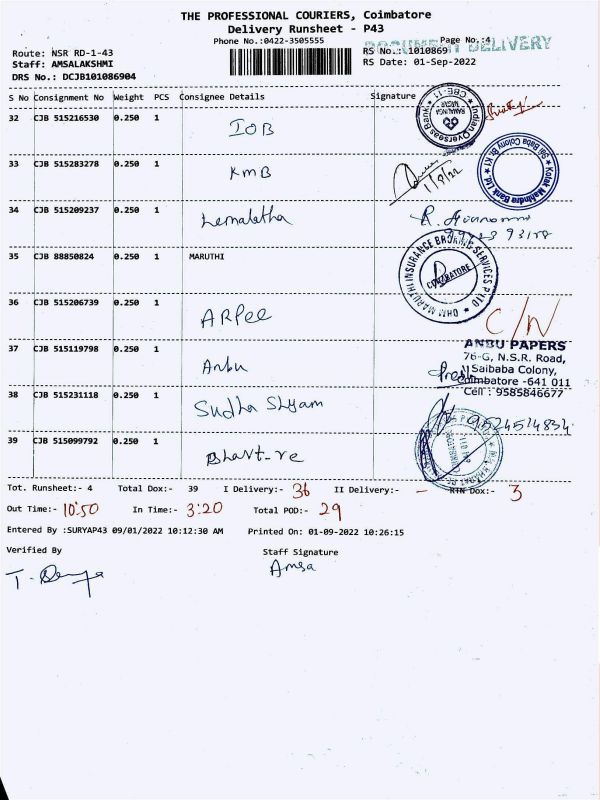 THE PROFESSIONAL COURIERS, Coimbatore
Delivery Runsheet - P43
Phone No.:0422-3505555
Page No.:4
DOCUMENT DELIVERY
Route: NSR RD-1-43
RS No.:1010869
Staff: AMSALAKSHMI
RS Date: 01-Sep-2022
DRS No.: DCJB101086904
S No Consignment No Weight PCS Consignee Details Signature
32 CJB 515216530 0.250 1 IOB
Indian Overseas Bank
CBE-11
33 CJB 515283278 0.250 1 KMB
1/9/22
Kotak Mahindra Bank Ltd. Sai Baba Colony Br. K1
34 CJB 515209237 0.250 1 Hemalatha
R.
35 CJB 88850824 0.250 1 MARUTHI
OHM MARUTHI INSURANCE BROKING SERVICES P LTD
COIMBATORE
36 CJB 515206739 0.250 1 ARPEE
C/N
37 CJB 515119798 0.250 1 Anbu
ANBU PAPERS
76-G, N.S.R. Road,
Saibaba Colony,
Coimbatore -641 011
Cell : 9585846677
38 CJB 515231118 0.250 1 Sudha Shyam
9524574834
39 CJB 515099792 0.250 1 Bhart-re
Tot. Runsheet:- 4 Total Dox:- 39 I Delivery:- 36 II Delivery:- - RTN Dox:- 3
Out Time:- 10:50 In Time:- 3:20 Total POD:- 29
Entered By :SURYAP43 09/01/2022 10:12:30 AM Printed On: 01-09-2022 10:26:15
Verified By Staff Signature
Amsa